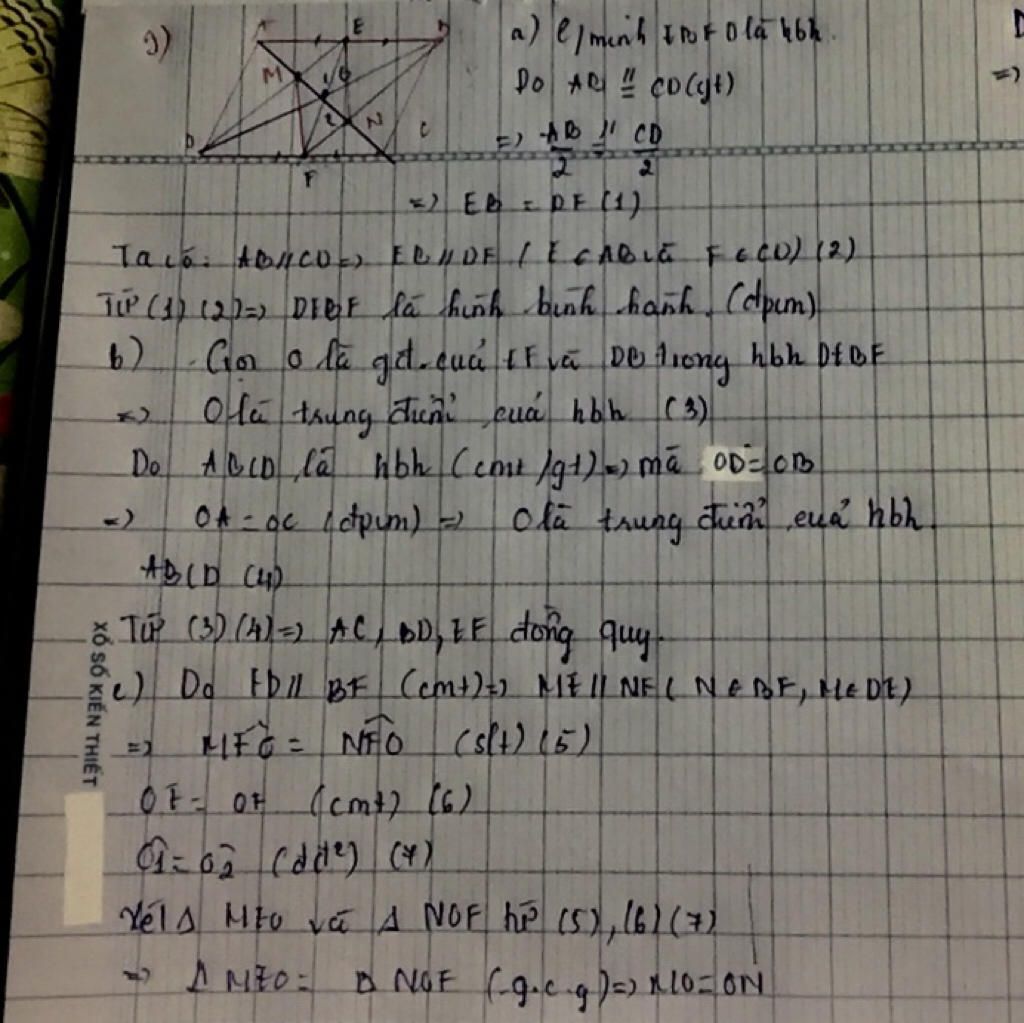 9)
A E B
M O
1
2 N C
D
F
a) C/minh EBFD là hbh.
Do AB // = CD (gt)
=> AB/2 // = CD/2
=> EB = DF (1)
Ta có: AB // CD => EB // DF ( E ∈ AB và F ∈ CD) (2)
Từ (1) (2) => DEBF là hình bình hành. (đpcm)
b) Gọi O là gđ của EF và DB trong hbh DEBF
=> O là trung điểm của hbh (3)
Do ABCD là hbh (cmt /gt) => mà OD = OB
=> OA = OC (đpcm) => O là trung điểm của hbh
ABCD (4)
Từ (3) (4) => AC, BD, EF đồng quy.
c) Do ED // BF (cmt) => ME // NF ( N ∈ BF, M ∈ DE)
=> MEO = NFO (slt) (5)
OE = OF (cmt) (6)
O1 = O2 (đđ) (7)
Xét Δ MEO và Δ NOF từ (5), (6) (7)
=> Δ MEO = Δ NOF (g.c.g) => MO = ON
XỔ SỐ KIẾN THIẾT
D
=>